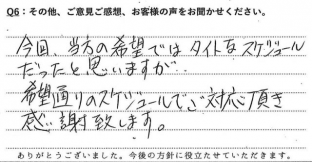 Q6:その他、ご意見ご感想、お客様の声をお聞かせください。
今回、当方の希望ではタイトなスケジュール
だったと思いますが..
希望通りのスケジュールでご対応頂き
感謝致します。
ありがとうございました。今後の方針に役立たせていただきます。